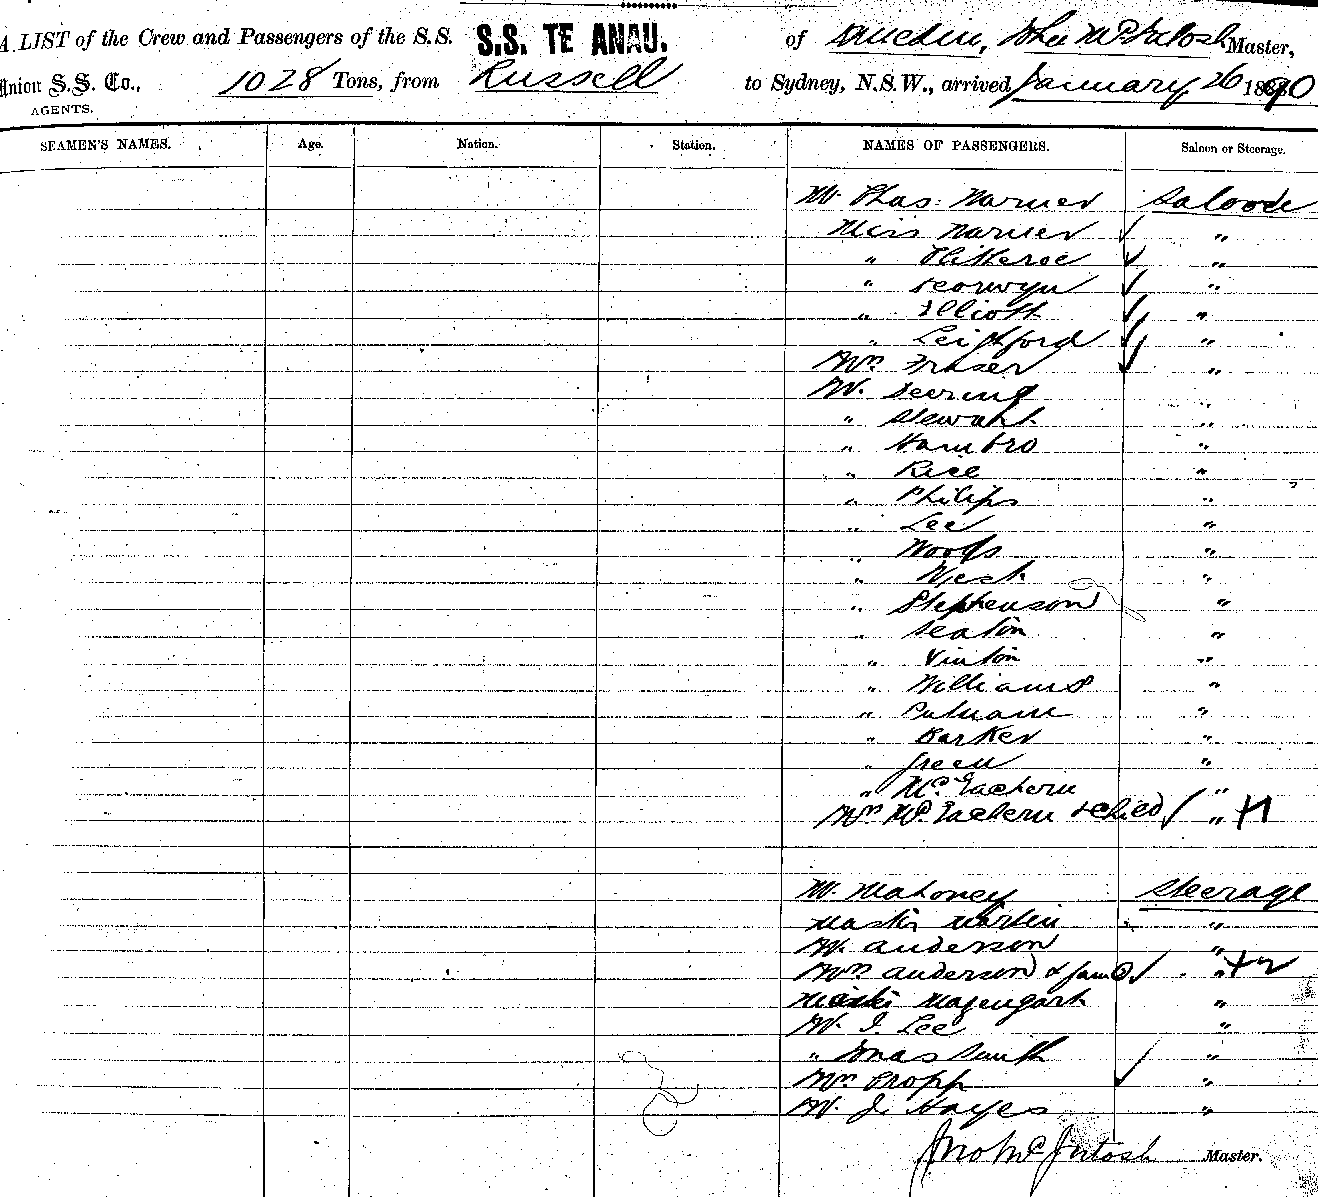 A LIST of the Crew and Passengers of the S.S. S.S. TE ANAU. of Dunedin, John McIntosh Master,
Union S.S. Co., 1028 Tons, from Russell to Sydney, N.S.W., arrived January 26 1890
AGENTS.
SEAMEN'S NAMES. Age. Nation. Station. NAMES OF PASSENGERS. Saloon or Steerage.
Mr Chas. Warner Saloon
Miss Warner "
" "
" "
" Elliott "
" Leighford "
Mrs Fraser "
Mr Deering "
" Stewart "
" Hambro "
" Rice "
" Philips "
" Lee "
" Woods "
" West "
" Stephenson "
" Seaton "
" Vinton "
" Williams "
" Putnam "
" Barker "
" Green "
" McEachern "
Mrs McEachern & child " +1
Mr Mahoney Steerage
Master Martin "
Mr Anderson "
Mrs Anderson & fam " +2
"
Mr I. Lee "
" Jonas Smith "
Mrs Propp "
Mr J. Hayes "
Jno McIntosh Master.